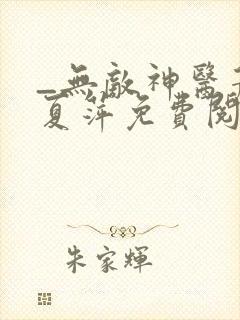 _無敵神醫
夏萍免費閱
朱家輝